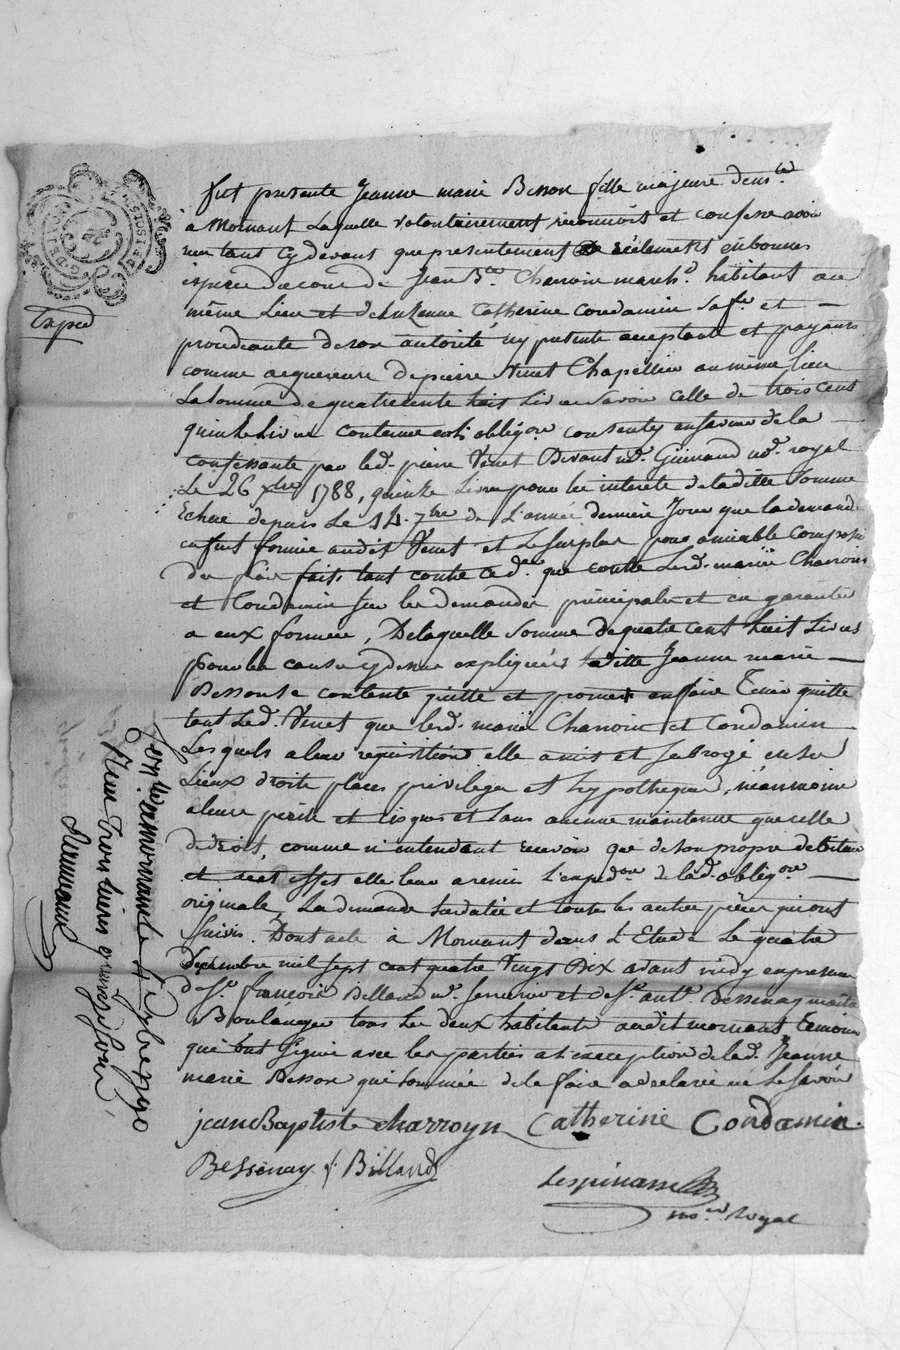 fut presente Jeanne marie Besson fille majeure dem.te
à Mornant Laquelle volontairement reconnoit et confesse avoir
reçu tant cy devant que presentement et réelement en bonnes
especes de jean B.te Charroin march.d habitant au
même Lieu et de Catherine Condamin sa fe. et
procedante de son autorité icy presente acceptante et payans
comme acquereurs de pierre Venet Chapellier au même lieu
La somme de quatre cents huit Livres Savoir celle de trois cent
quinze Livres contenue en l'obligon. consentie en faveur de la
confessante par led. pierre Venet Devant me. Guinand no.re royal
Le 26 xbre 1788, quinze Livres pour les interets de ladite somme
Echue depuis Le 14 7bre de L'année derniere Jour que la demande
en fut formée audit Venet et Le surplus pour amiable composition
des frais faits tant contre led. que contre Lesd. mariés Charroin
et Condamin sur les demandes principales et en garantie
a eux formées, De laquelle somme de quatre cent huit Livres
pour les causes cy dessus expliquées ladite Jeanne marie
Besson se contente quitte et promet en faire Tenir quitte
tant Led. Venet que lesd. mariés Charroin et Condamin
Lesquels a leur requisition elle a mis et subrogé en ses
Lieux droits places privileges et hypotheques, néanmoins
a leurs perils et risques et sans aucune maintenue que celle
de droit, comme n'entendant recevoir que de son propre debiteur
et a cet effet elle leur a remis L'exped.on de lad. obligon.
originale, La demande susdatée et toutes les autres pieces qui ont
suivi. Dont acte à Mornant dans L'Etude Le quatre
Decembre mil sept cent quatre Vingt Dix avant midy en presence
de Sr. françois Billard me. serrurier et de Sr. ant.e Bessenay maitre
Boulanger tous Les deux habitants audit mornant temoins
qui ont signé avec les parties a l'exception de lad. Jeanne
marie Besson qui sommée de le faire a declaré ne Le savoir
jean Baptiste charroyn Catherine Condamin
Bessenay f. Billard
Lespinasse
no.re royal
Exped
Con.lé a mornant le 4 Xbre 1790
Reçu Trois livres quinze sous